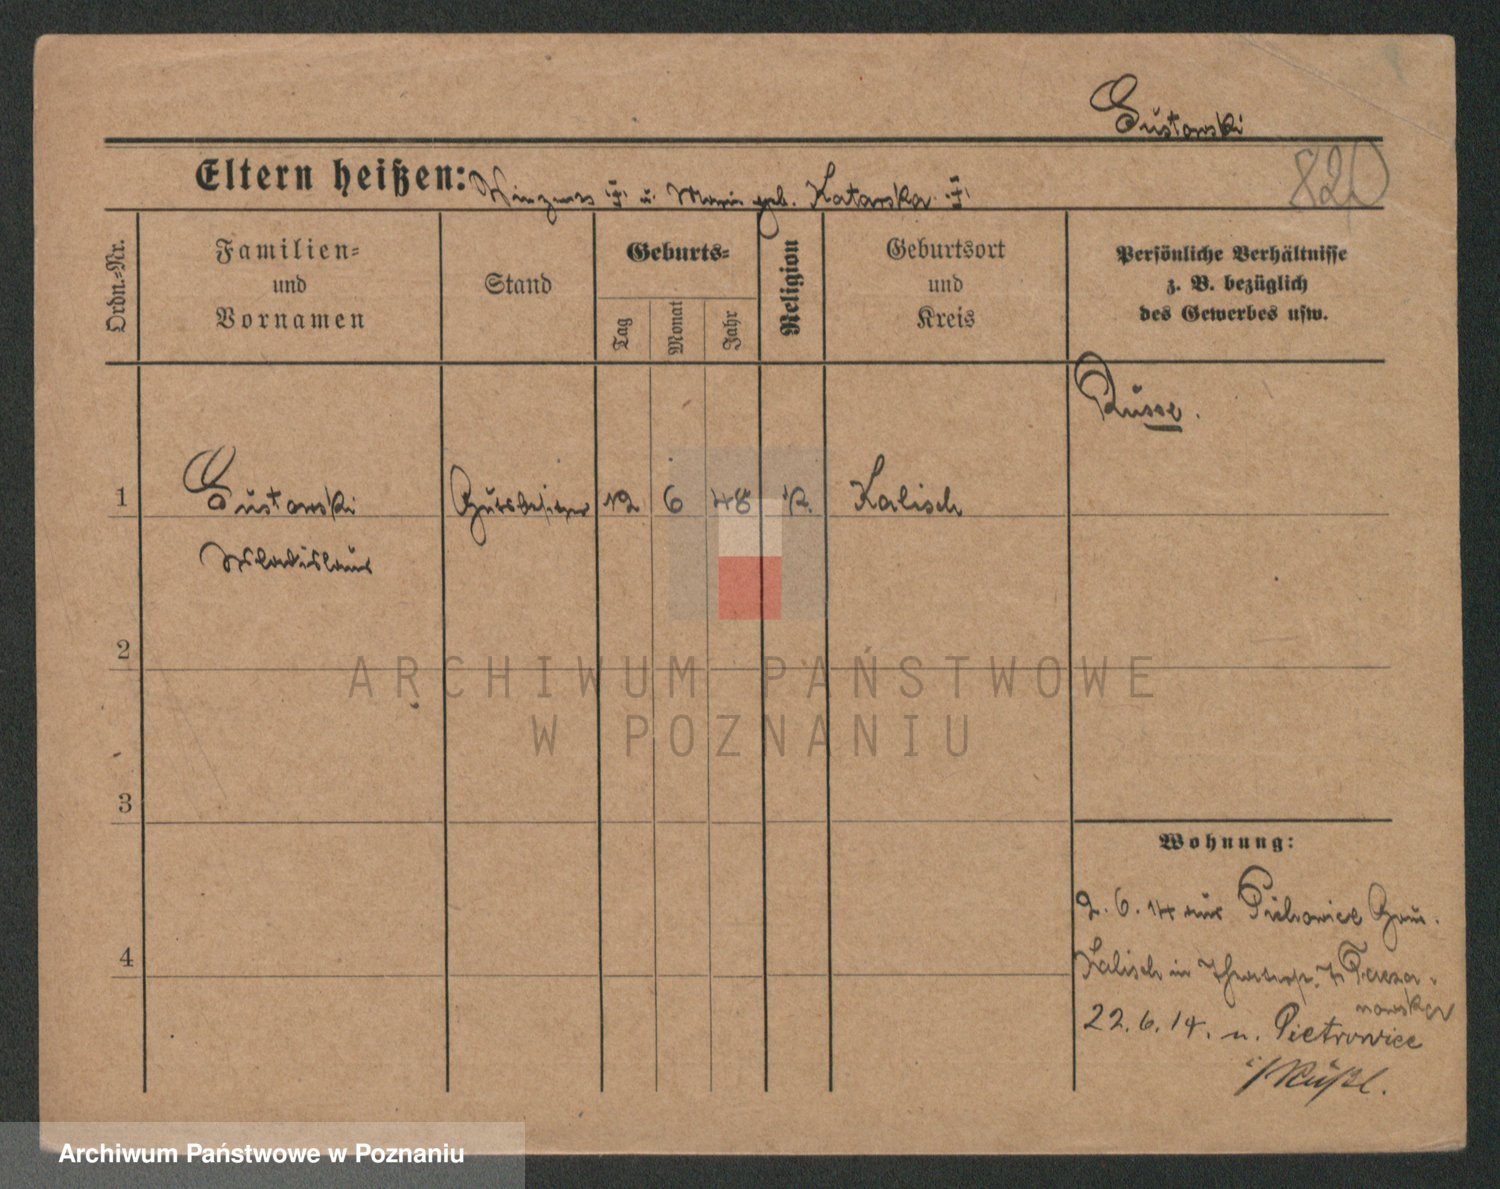 Gustowski
820
Eltern heißen: Vinzens † u. Maria geb. Zatarska †
Ordn.=Nr.
Familien=
und
Vornamen
Stand
Geburts=
Tag
Monat
Jahr
Religion
Geburtsort
und
Kreis
Persönliche Verhältnisse
z. B. bezüglich
des Gewerbes usw.
Russe.
1 Gustowski Gutsbesitzer 12 6 48 k. Kalisch
Wladislaus
2
3
4
Wohnung:
2. 6. 14 aus Gouv.
Kalisch in
22. 6. 14. n. Pietrowice
i/Rußl.
ARCHIWUM PAŃSTWOWE
W POZNANIU
Archiwum Państwowe w Poznaniu